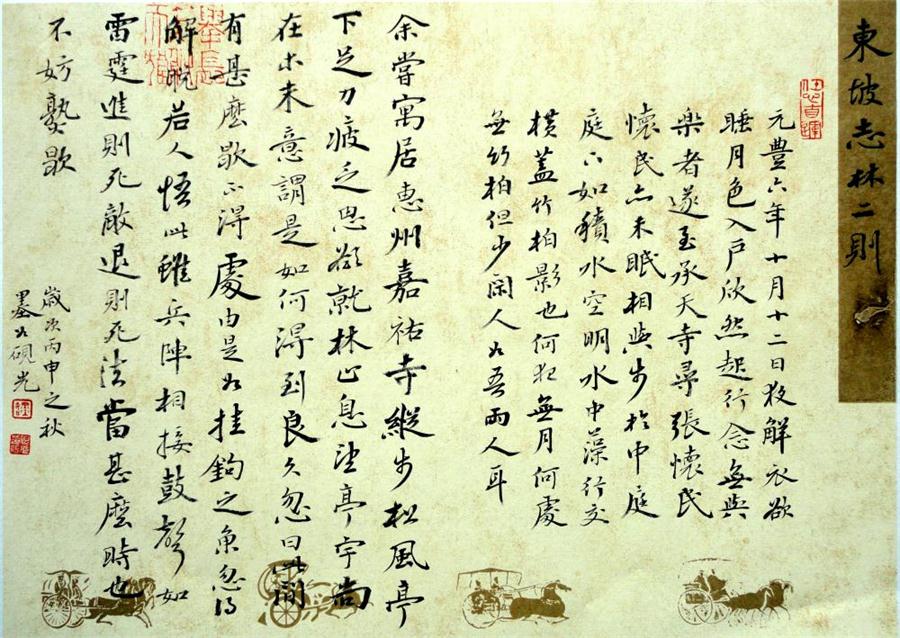 東坡志林二則
元豐六年十月十二日夜解衣欲
睡月色入戶欣然起行念無與
樂者遂至承天寺尋張懷民
懷民亦未眠相與步於中庭
庭下如積水空明水中藻行交
橫蓋竹柏影也何夜無月何處
無竹柏但少閑人如吾兩人耳
余嘗寓居惠州嘉祐寺縱步松風亭
下足力疲乏思欲就林止息望亭宇尚
在木末意謂是如何得到良久忽曰此間
有甚麼歇不得處由是如挂鉤之魚忽得
解脫若人悟此雖兵陣相接鼓聲如
雷霆進則死敵退則死法當甚麼時也
不妨熟歇
歲次丙申之秋
墨硯光